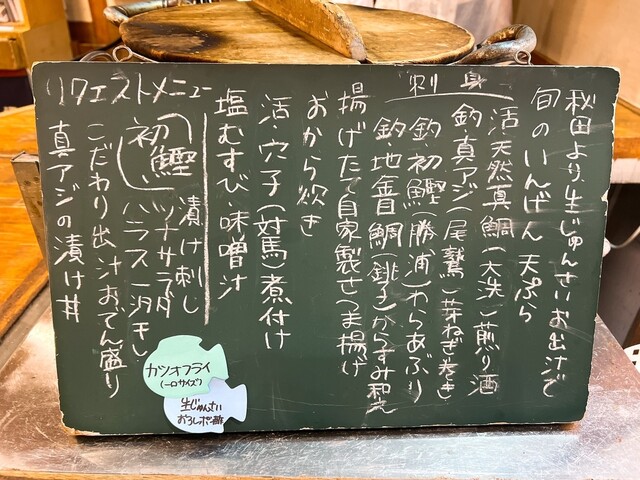 秋田より、生じゅんさいお出汁で
旬のいんげん 天ぷら
刺身
活・天然真鯛(大洗)煎り酒
釣・真アジ(尾鷲)芽ねぎ巻き
釣・初鰹(勝浦)わらあぶり
釣・地金目鯛(銚子)からすみ和え
揚げたて自家製さつま揚げ
おから炊き
活・穴子(対馬)煮付け
塩むすび・味噌汁
リクエストメニュー
初鰹
漬け刺し
ツナサラダ
ハラス一汐干し
こだわり出汁おでん盛り
真アジの漬け丼
カツオフライ
(一口サイズ)
生じゅんさい
おろしポン酢